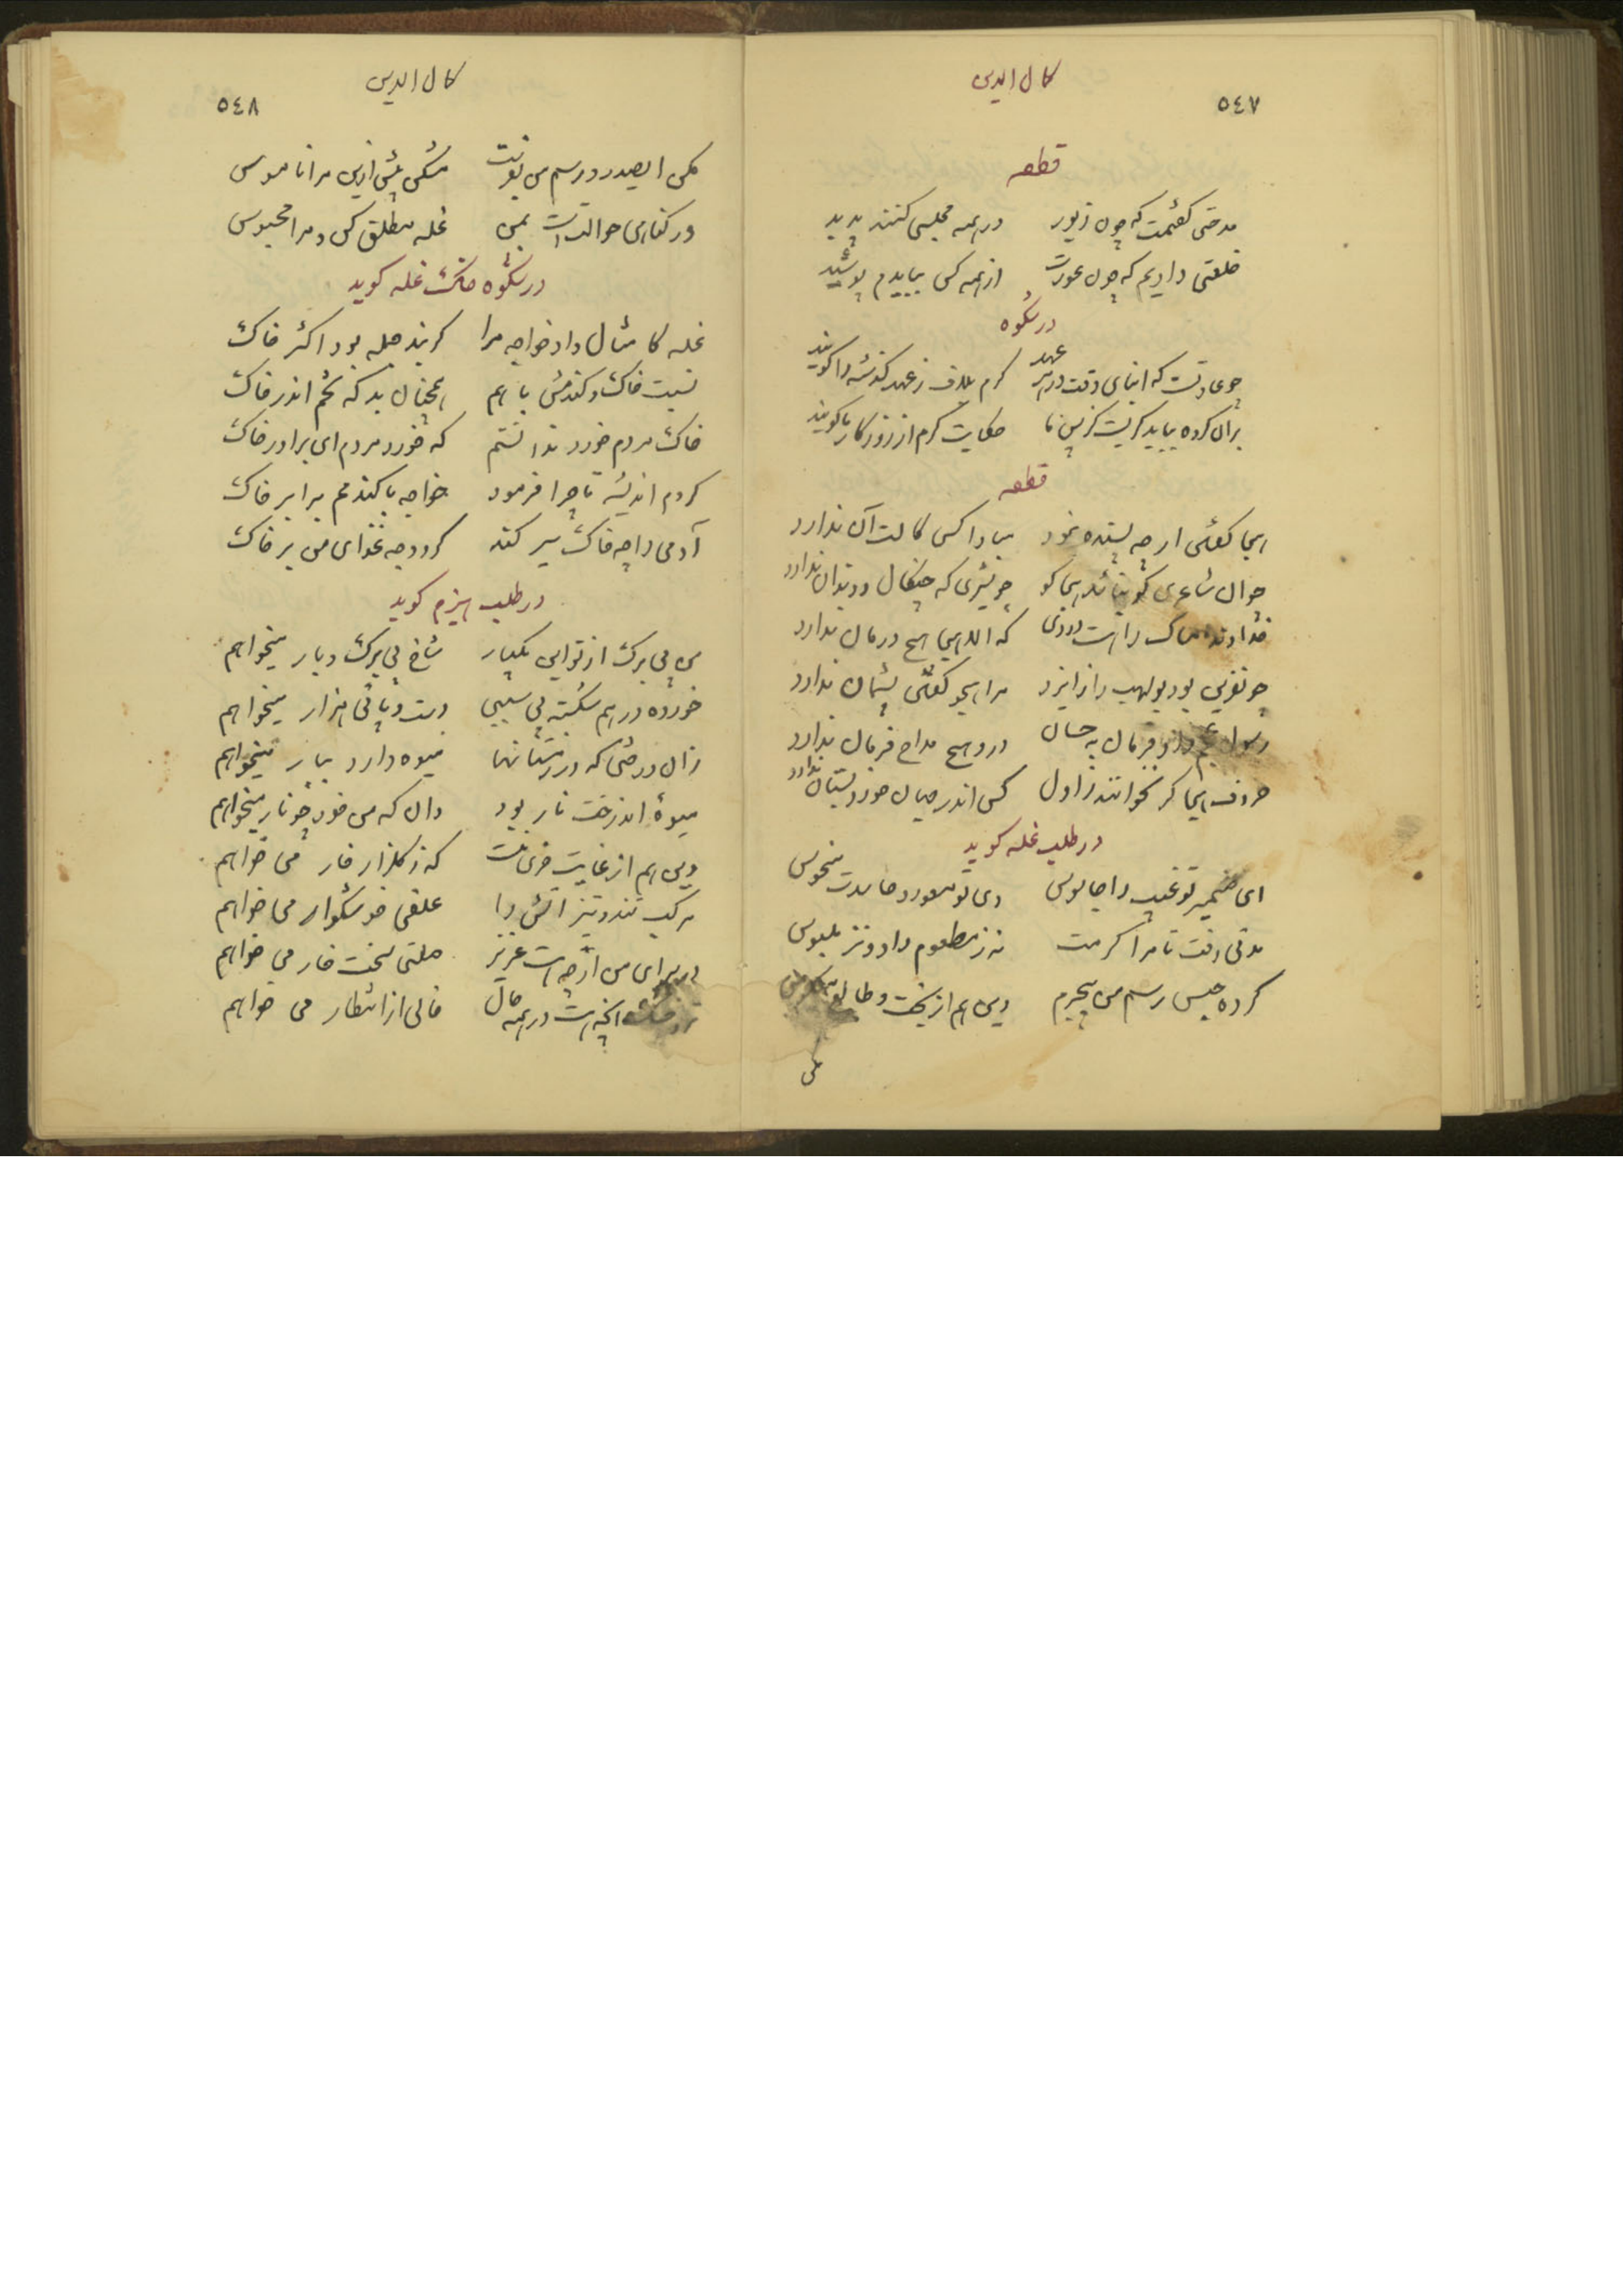 کمال الدین
٥٤٧
قطعه
مدحتی گفتمت که چون زیور در همه مجلسی کنند پدید
خلعتی دادیم که چون عورت از همه کس ببایدم پوشید
در شکوه
چو عادتست که ابنای وقت در هر عهد کرم بلاف ز عهد گذشته وا گویند
بران گروه بباید گریست کز پس ما حکایت کرم از روزگار ما گویند
قطعه
هجا گفتن ار چه پسندیده نبود مبادا کسی کالت آن ندارد
چو آن شاعری کو نباشد هجا گو چو شیری که چنگال و دندان ندارد
خداوند امساک را هست دردی که الا هجا هیچ درمان ندارد
چو نفرین بود بولهب را ز ایزد مرا هجو گفتن پشیمان ندارد
حروف هجا گر نخوانند ز اول کس اندر میان خورد بستان ندارد
در طلب غله گوید
ای ضمیر تو غیب را جاسوس وی تو مسعود و حاسدت منحوس
مدتی رفت تا مرا کرمت نه ز مطعوم داد و نز ملبوس
کرده حبس رسم من بیجرم وین هم از بخت و طالع
مکن
کمال الدین
٥٤٨
مکن ایصدر و رسم من بفرست مشکن بیش ازین مرا ناموس
ور گناهی حوالتست بمن غله مطلق کن و مرا محبوس
در شکوه خاک غله گوید
غله کامثال داد خواجه مرا گر نه جمله بود اکثر خاک
نسبت خاک و گندمش با هم همچنان بد که تخم اندر خاک
خاک مردم خورد ندانستم که خورد مردم ای برادر خاک
کردم اندیشه تا چرا فرمود خواجه با گندمم برابر خاک
آدمی را چه خاک سیر کند کرد وجه غذای من بر خاک
در طلب هیزم گوید
من بی برگ از تو این یکبار شاخ بی برگ و بار میخواهم
خورده در هم شکسته بی سببی دست و پائی هزار میخواهم
زان درختی که در زمستانها میوه دارد ببار میخواهم
میوهٔ اندرخت نار بود وان که من خود چو نار میخواهم
وین هم از غایت خری منست که ز گلزار خار می خواهم
مرکب تند و تیز آتش را علفی خوشگوار می خواهم
در سرای من ار چه هست عزیز ملتی سخت خار می خواهم
تر و خشک آنچه هست در همه حال خالی از انتظار می خواهم